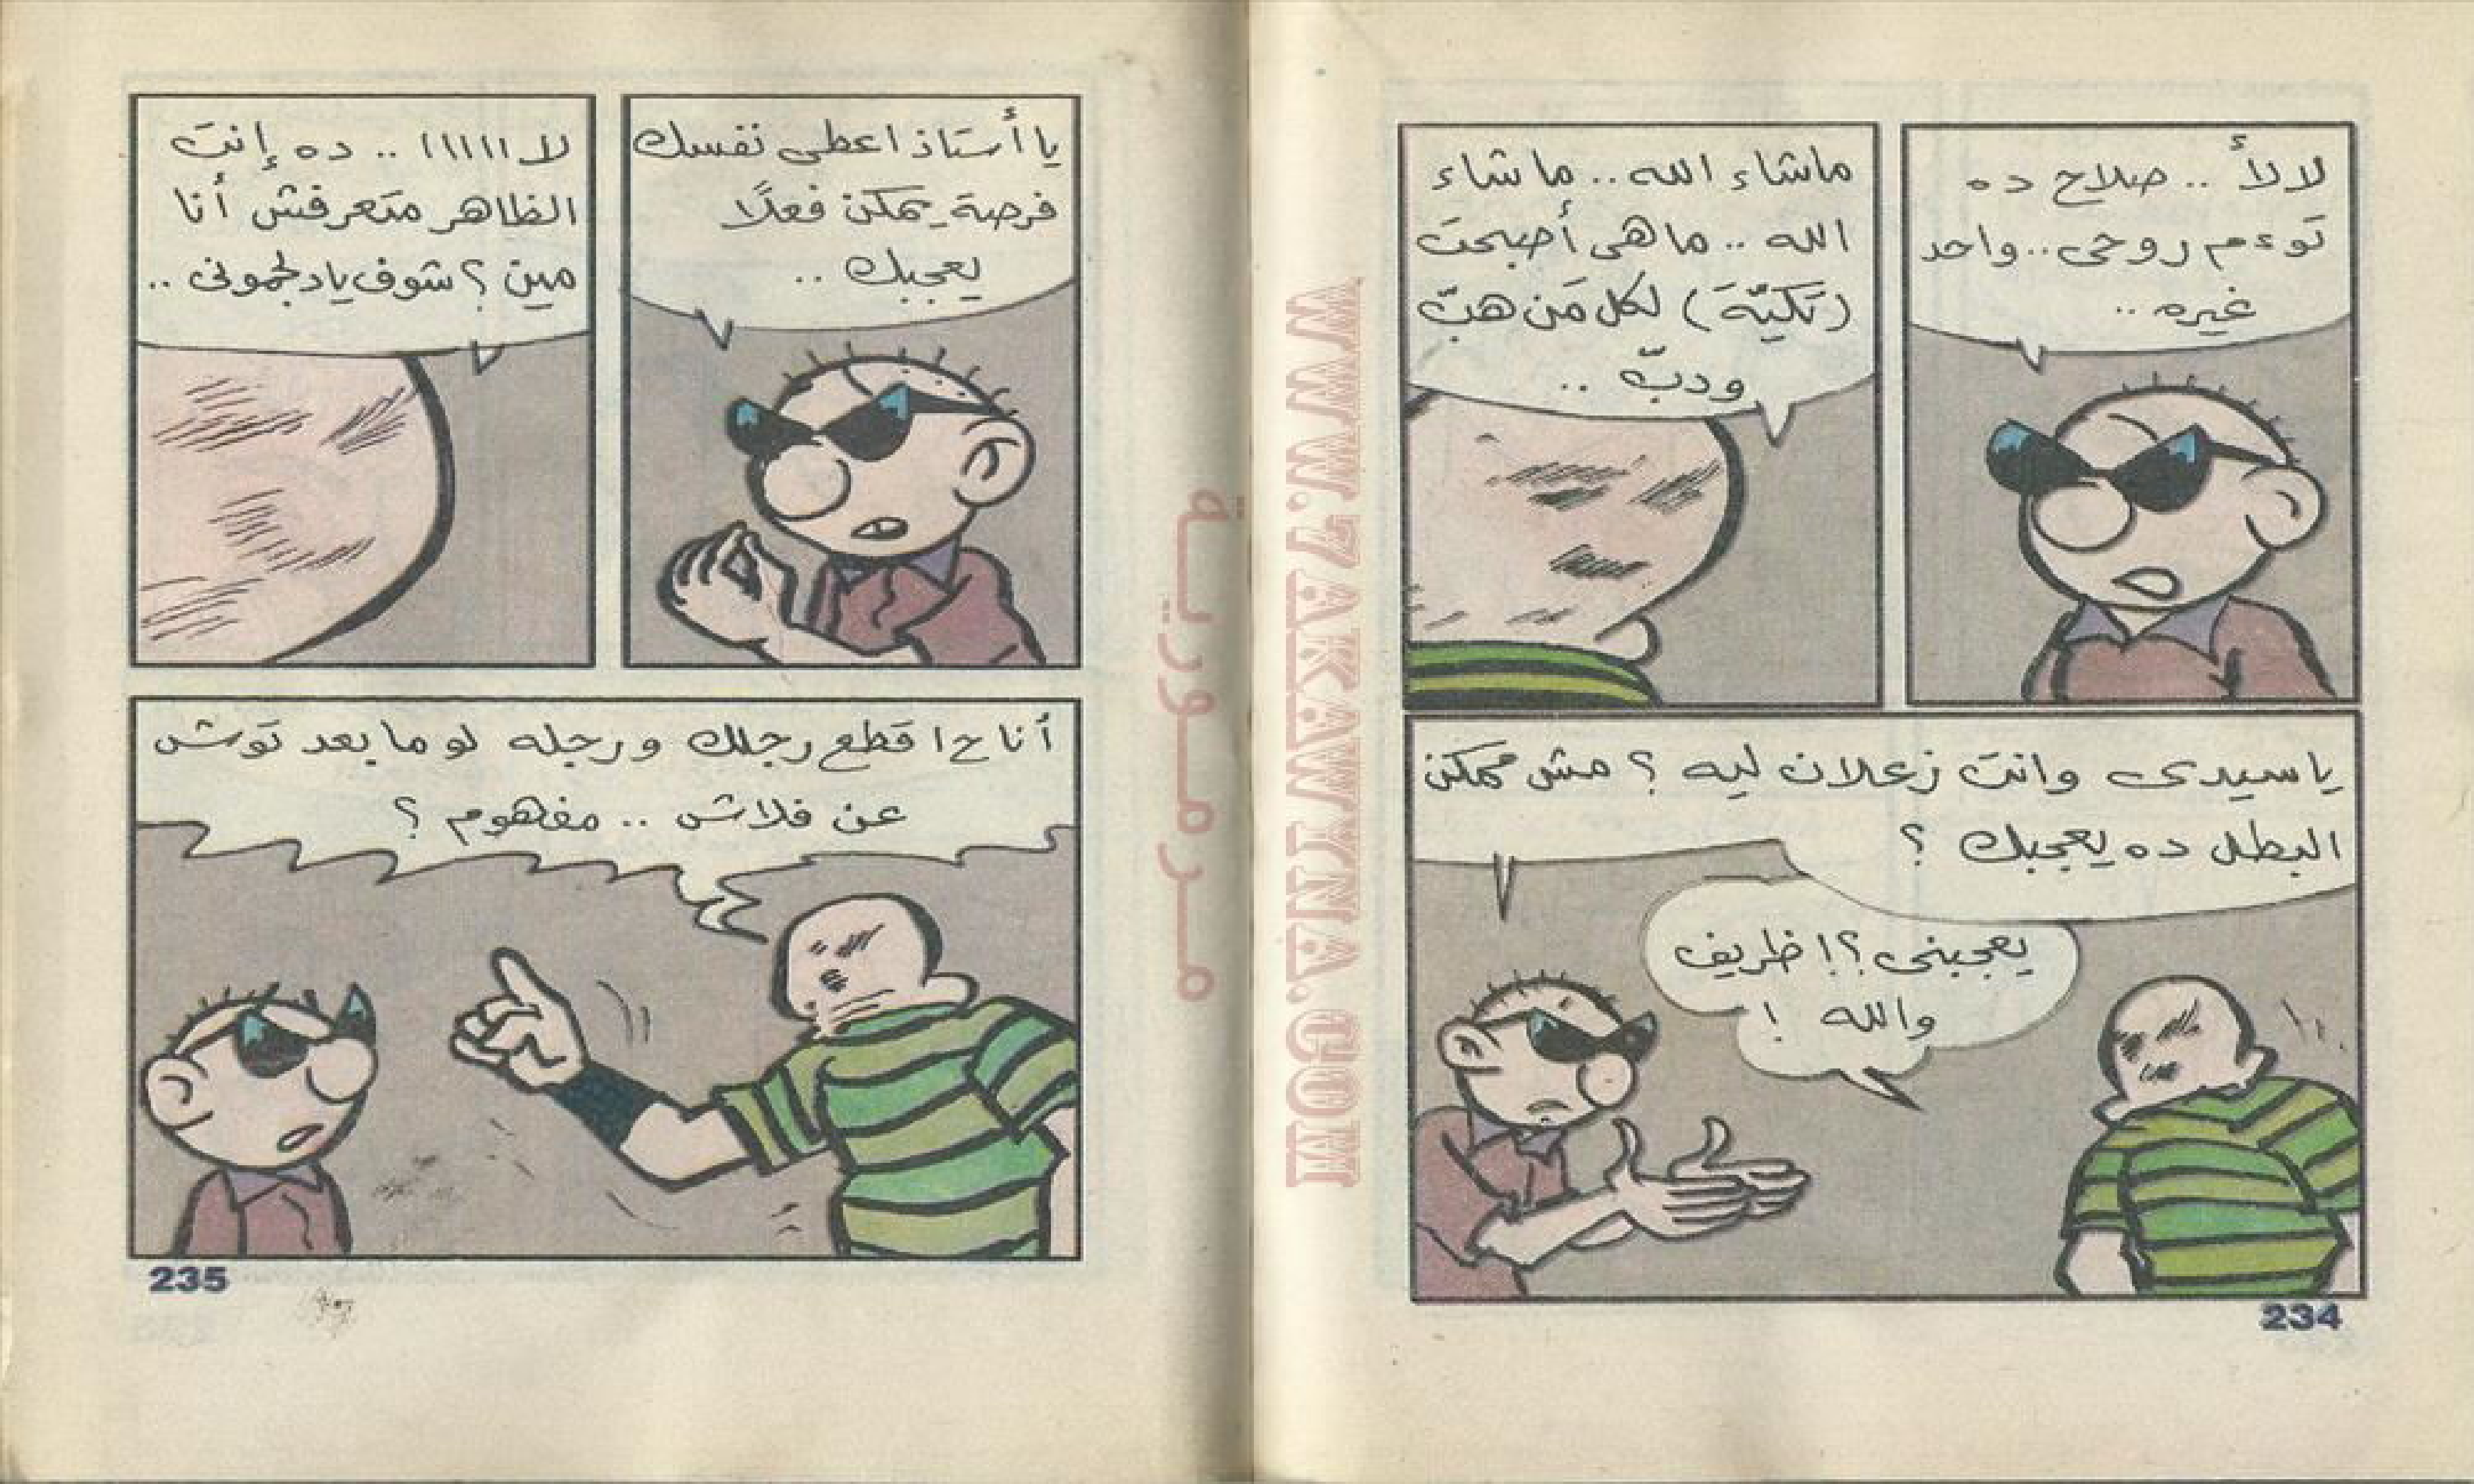 لالأ .. صلاح ده
توءم روحى .. واحد
غيره ..
ماشاء الله .. ماشاء
الله .. ما هى أصبحت
(تَكيّة) لكل مَن هبّ
ودبّ ..
يا سيدى وانت زعلان ليه ؟ مش ممكن
البطل ده يعجبك ؟
يعجبنى ؟! ظريف
والله !
234
يا أستاذ اعطى نفسك
فرصة يمكن فعلًا
يعجبك ..
لا ااااا .. ده إنت
الظاهر متعرفش أنا
مين ؟ شوف يا دلجمونى ..
أنا ح اقطع رجلك ورجله لو ما بعد توش
عن فلاش .. مفهوم ؟
235
مـرمـوريـة
WWW.7AKAWWYNA.COM